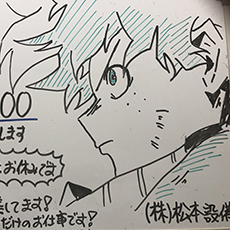 00
します
お休みです
してます!
だけのお仕事です!
(株)松本設備